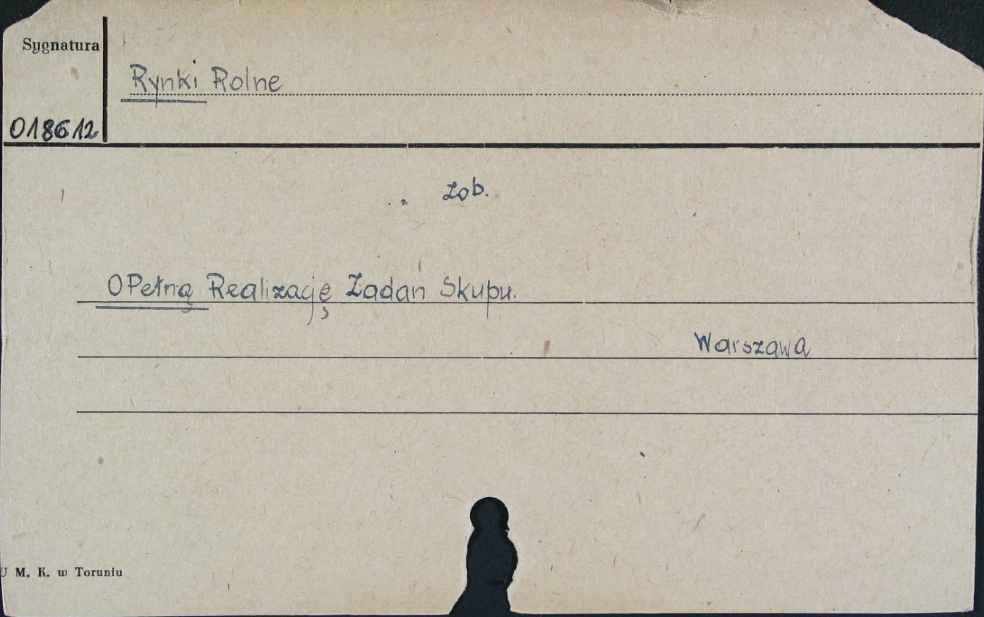 Sygnatura
Rynki Rolne
018612
Zob.
O Pełną Realizację Zadań Skupu.
Warszawa
U M. K. w Toruniu